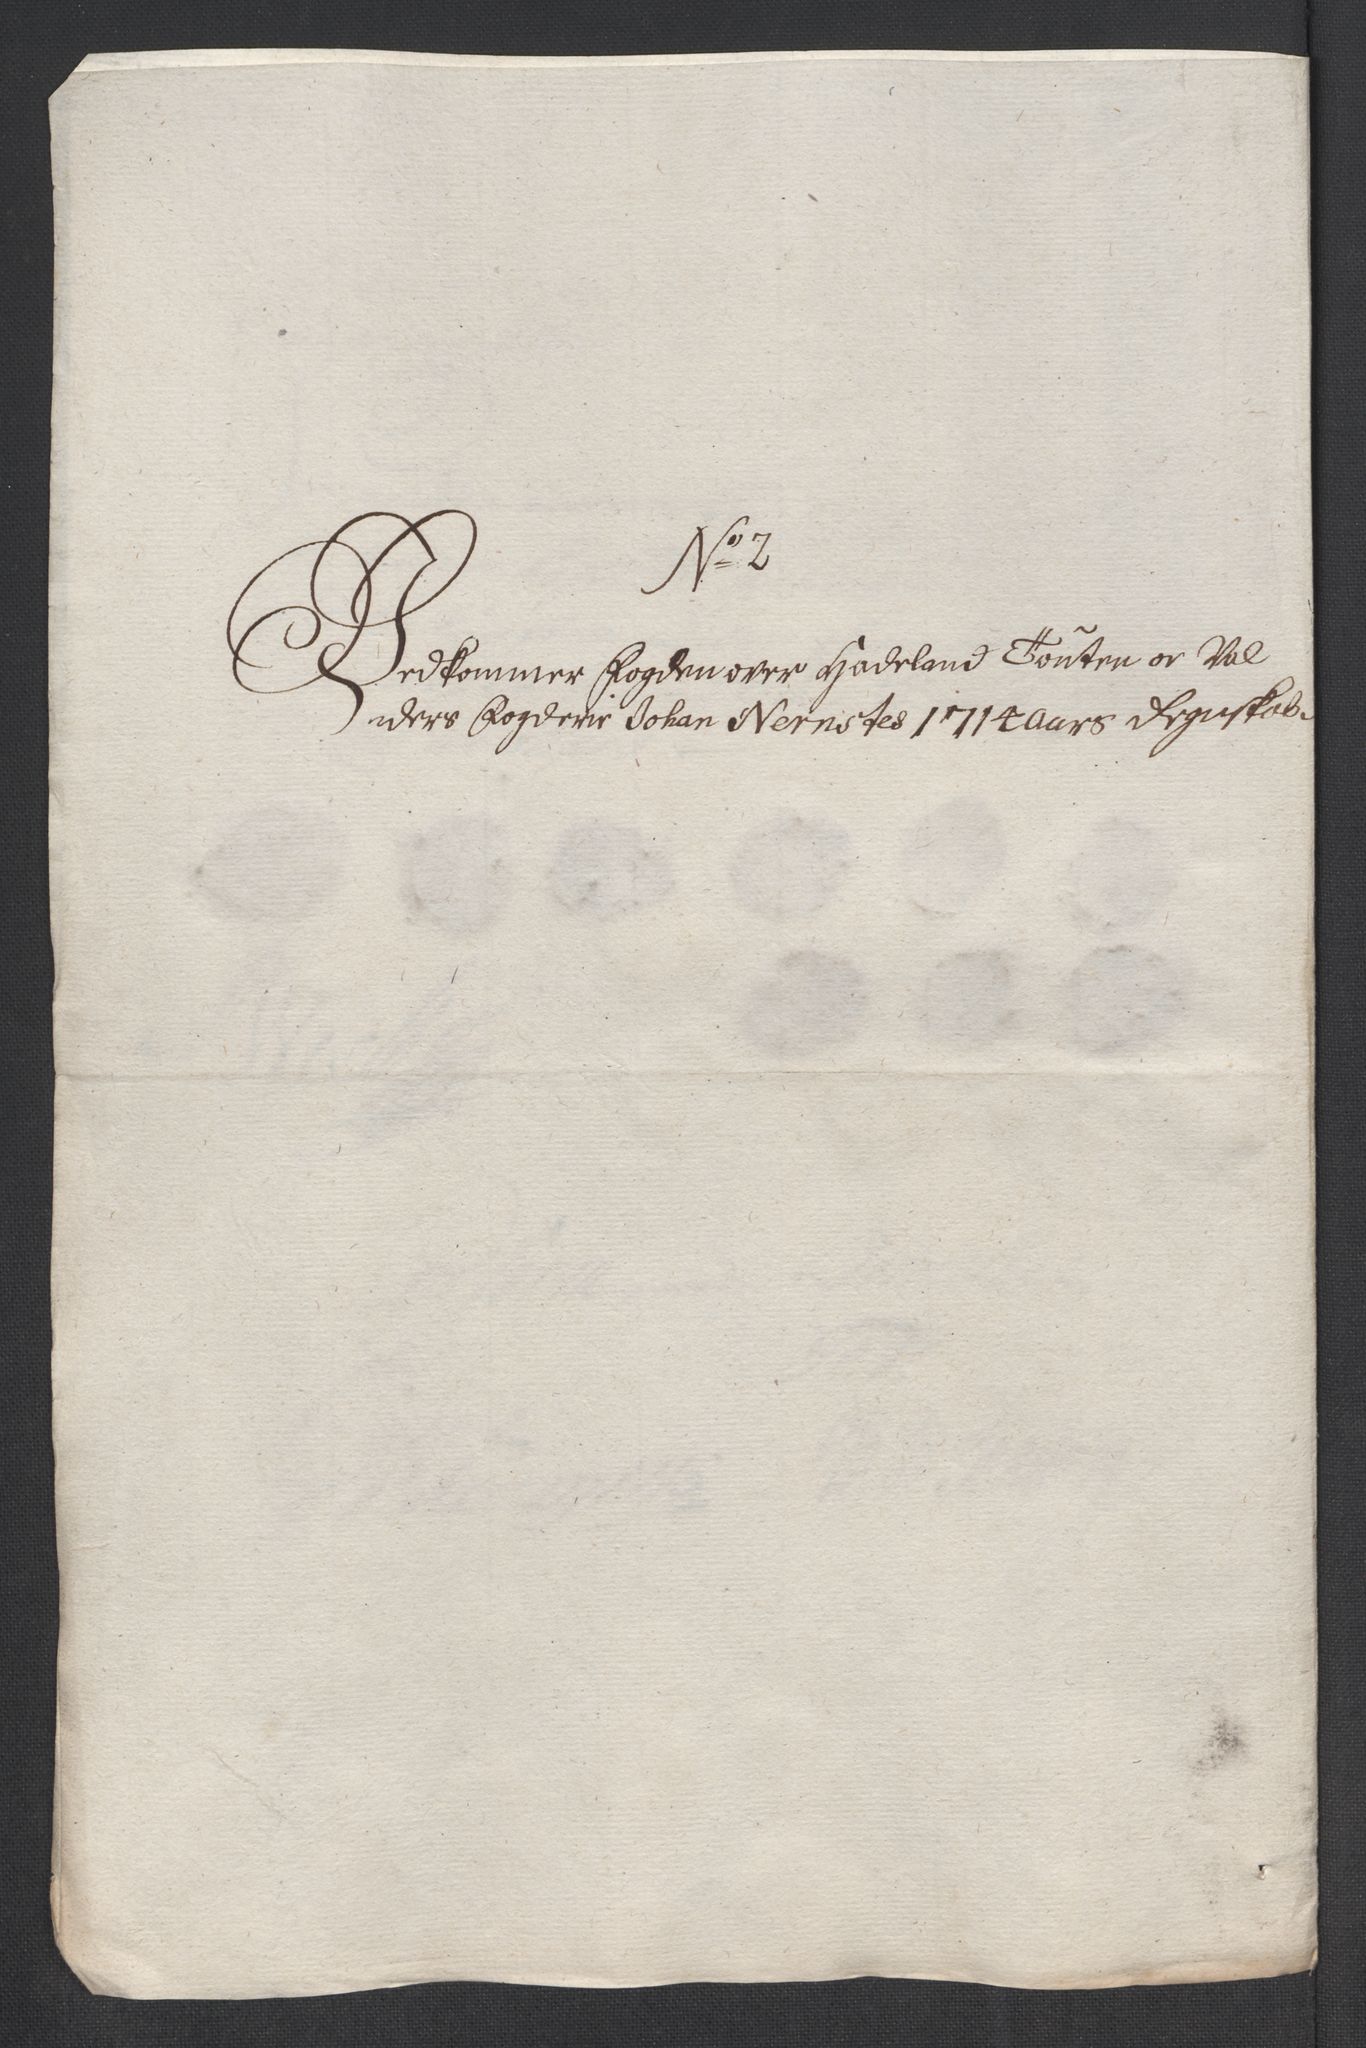 No 2
Vedkommer Fogden over Hadeland Touten oc Val
ders Fogderie Johan Nernstes 1714 Aars Regnskab.